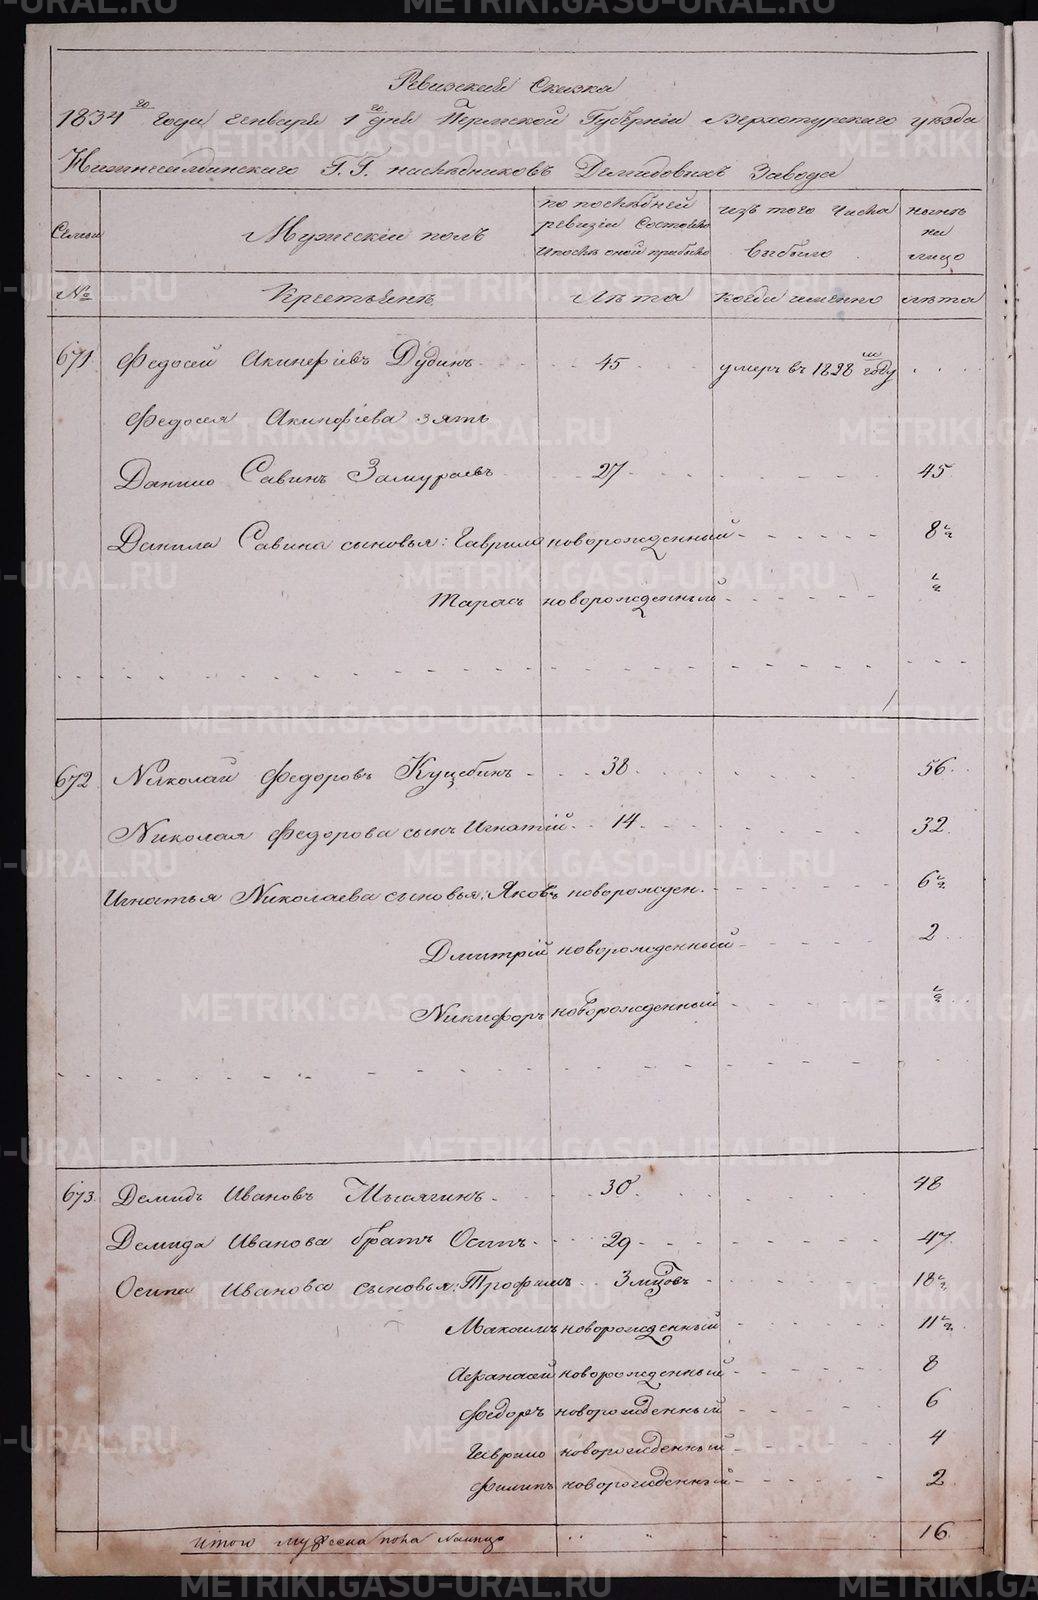 Ревизская Сказка
1834го года генваря 1го дня Пермской Губернiи Верхотурскаго уезда
Нижнесалдинскаго Г. Г. наследниковъ Демидовыхъ Завода
Семьи
Мужескiй полъ
по последней ревизiи состояло и после оной прибыло
изъ того числа выбыло
ныне на лицо
№
Крестьяне
Лета
когда именно
лета
671 Федосей Акинфiевъ Дудинъ 45 умеръ въ 1828м году
Федосея Акинфiева зять
Данило Савинъ Замураевъ 27 45
Данила Савина сыновья: Гаврило новорожденный 8½
Тарасъ новорожденный ½
672 Николай Федоровъ Куцебинъ 38 56
Николая Федорова сынъ Игнатiй 14 32
Игнатья Николаева сыновья: Яковъ новорожден. 6½
Дмитрiй новорожденный 2
Никифоръ новорожденный ½
673 Демидъ Ивановъ Мысягинъ 30 48
Демида Иванова братъ Осипъ 29 47
Осипа Иванова сыновья: Трофимъ 3 мцовъ 18½
Максимъ новорожденный 11½
Афанасей новорожденный 8
Федоръ новорожденный 6
Гаврило новорожденный 4
Филипъ новорожденный 2
Итого мужеска пола налицо 16
METRIKI.GASO-URAL.RU